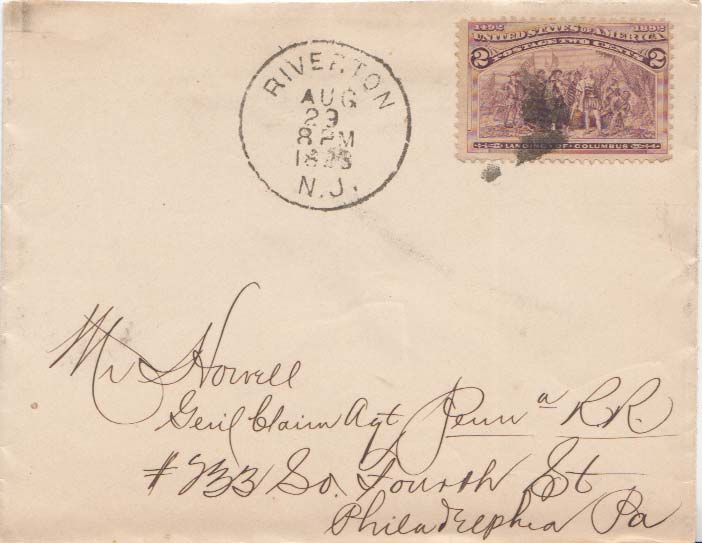 1492 1892
UNITED STATES OF AMERICA
POSTAGE TWO CENTS
2 2
LANDING OF COLUMBUS
RIVERTON
AUG
29
8 PM
N.J.
Mr Howell
Genl Claim Agt Penna RR.
#233 So. Fourth St
Philadelphia Pa